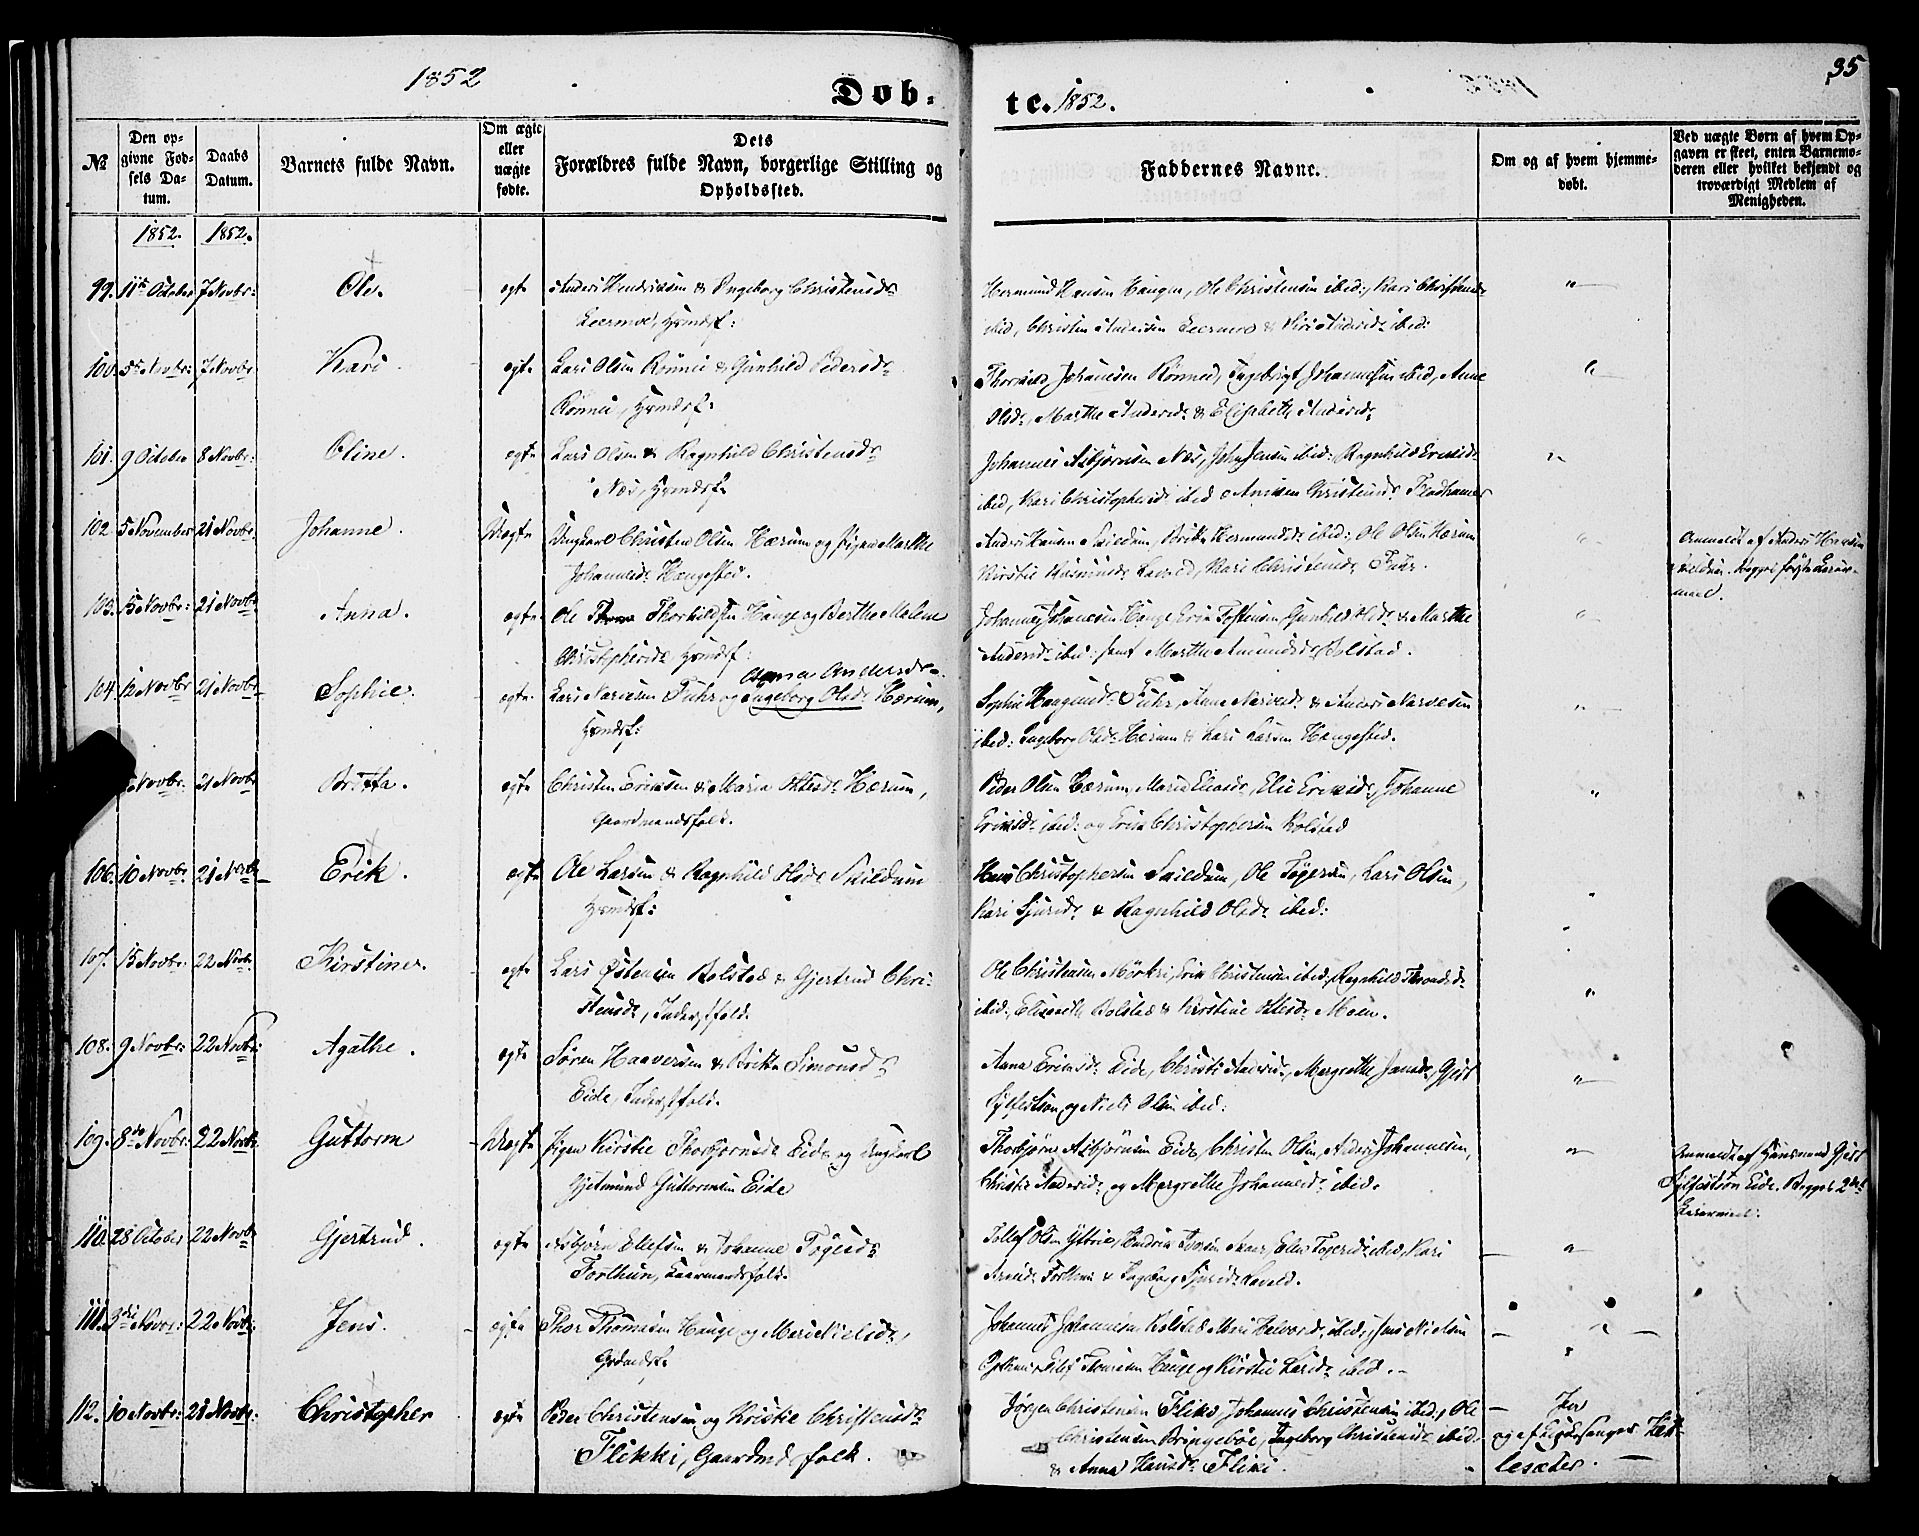 1852
Døb-
te. 1852.
35
№
Den opgivne Fødsels Datum.
Daabs Datum.
Barnets fulde Navn.
Om ægte eller uægte fødte.
Dets Forældres fulde Navn, borgerlige Stilling og Opholdssted.
Faddernes Navne.
Om og af hvem hjemmedøbt.
Ved uægte Børn af hvem Opgaven er skeet, enten Barnemoderen eller hvilket bekjendt og troværdigt Medlem af Menigheden.
1852. 1852.
99. 11te October 7 Novbr: Ole. egte Anders Hendriksen & Ingeborg Christensdr
Leermoe, Hsmdsf:
Hermund Hansen Haugen, Ole Christensen ibid:, Kari Christensdr
ibid, Christen Andersen Leermoe & Siri Andersdr ibid:
100. 5te Novbr: 7 Novbr Kari. egte Lars Olsen Rønnei & Gunhild Pedersdr
Rønnei, Hsmdsf:
Johannesen Rønnei, Ingebrigt Johannesen ibid, Anne
Olsdr, Marthe Andersdr & Elisabeth Andersdr
101. 9 October 8 Novbr: Oline. egte Lars Olsen & Ragnhild Christensdr
Næs, Hsmdsf.
Johannes Asbjørnsen Næs, John Jensen ibid: Ragnhild Eriksdr
ibid, Kari Christophersdr ibid & Christensdr
102. 5 November 21 Novbr. Johanne. Uægte Ungkarl Christen Olsen Hærum og Pigen Marthe
Johannesdr Haugested.
Anders Hansen Skildum, Britha Hermundsdr ibid: Ole Olsen Hærum
Kirstie Rasmusdr Kari Christensdr Fuhr.
Anmeldt af Anders Hansen
Skieldum. Begges første Leier-
maal.
103. 15 Novbr: 21 Novbr Anna. egte Ole Thorkildsen Hauge og Berthe Malene
Christophersdr Hsmdsf:
Johannes Johannesen Hauge, Torstensen, Gunhild Olsdr & Marthe
Andersdr ibid: samt Marthe Amundsdr Bolstad.
104. 12 Novbr 21 Novbr Sophie. egte Lars Narvesen Fuhr og Ingeborg Olsdr Hærum,
Anna Andersdr.
Hsmdsf:
Sophie Haagensdr Fuhr, Anne Narvesdr & Anders Narvesen
ibid: Ingeborg Olsdr Hærum & Lars Larsen Haugested.
Novbr: 21 Novbr Britta. egte Christen Eriksen & Maria Ottesdr Hærum,
Gaardmandsfolk.
Peder Olsen Hærum, Maria Eliasdr, Elie Eriksdr, Johanne
Eriksdr ibid: og Erik Christophersen Kolstad
106. 10 Novbr 21 Novbr Erik. egte Ole Larsen & Ragnhild Olsdr Skildum
Hsmdsf:
Hans Christophersen Skieldum, Ole Tøgersen, Lars Olsen,
Kari Sjursdr & Ragnhild Olsdr ibid:
107. 15 Novbr: 22 Novbr. Kirstine. egte Lars Østensen Bolstad & Gjertrud Chri-
stensdr, Inderstfolk.
Ole Christensen Mørkri, Erik Christensen ibid, Ragnhild
ibid:, Elisabeth Bolstad & Kirstine Ottesdr Moen.
108. 9 Novbr: 22 Novbr: Agathe. egte Søren Haaversen & Britha Simonsdr
Eide, Inderstfolk.
Anna Eriksdr Eide, Christi Andersdr, Margrethe Jensdr, Gjest
Sylfestson og Niels Olsen ibid:
109. 8de Novbr: 22 Novbr Guttorm Uegte Pigen Kirstie Thorbjørnsdr Eide og Ungkarl
Gjetmund Guttormsen Eide
Thorbjørn Asbjørnsen Eide, Christen Olsen, Anders Johannesen,
Christie Andersdr og Margrethe Johannesdr ibid.
Anmeldt af Huusmand Gjest
Sylfestson Eide. Begges 2det
Leiermaal.
110. 28 October 22 Novbr Gjertrud. egte Asbjørn Ellefsen & Johanne Tøgersdr
Forthun, Gaarmandsfolk.
Tollef Olsen Yttrie, Hendrik Iversen Skaar, Elen Tøgersdr ibid, Kari
Forthun & Ingeborg Sjursdr
111. 3die Novbr: 22 Novbr: Jens. egte Thor Thomasen Hauge og Mari Nielsdr,
Grdmdsf.
Johannes Johannesen Kolstad Mari Halvorsdr ibid; Jens Nielsen
Thomasen Hauge og Kirstie Larsdr ibid. –
112. 10 Novbr: 28 Novbr: Christopher egte Peder Christensen og Kristie Christensdr
Flikki, Gaardmdsfolk.
Jørgen Christensen Fliki, Johannes Christensen ibid:, Ole
Christensen Bringebøe, Ingeborg Christensdr ibid.
& Anna Hansdr Fliki.
Ja
og af Kirkesanger Kit-
lesæter.